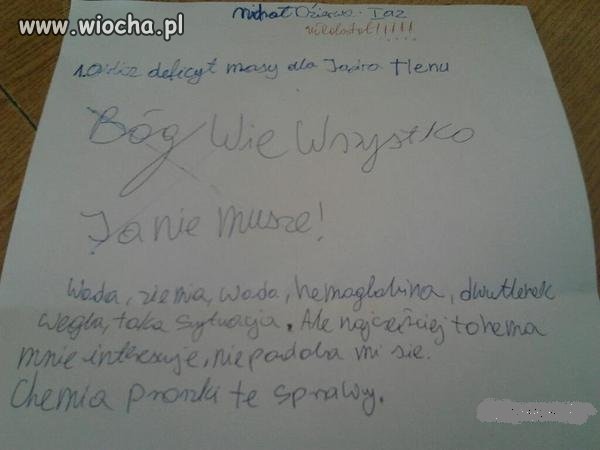 www.wiocha.pl
Michał Ta2
nieobstol!!!!!
1. Oblicz deficyt masy dla Jądra tlenu
Bóg Wie Wszystko
Ja nie musze!
Woda, ziemia, woda, hemoglobina, dwutlenek
węgla, taka sytuacja. Ale najcześciej to hema
mnie interesuje, nie podoba mi sie.
Chemia proszki te sprawy.